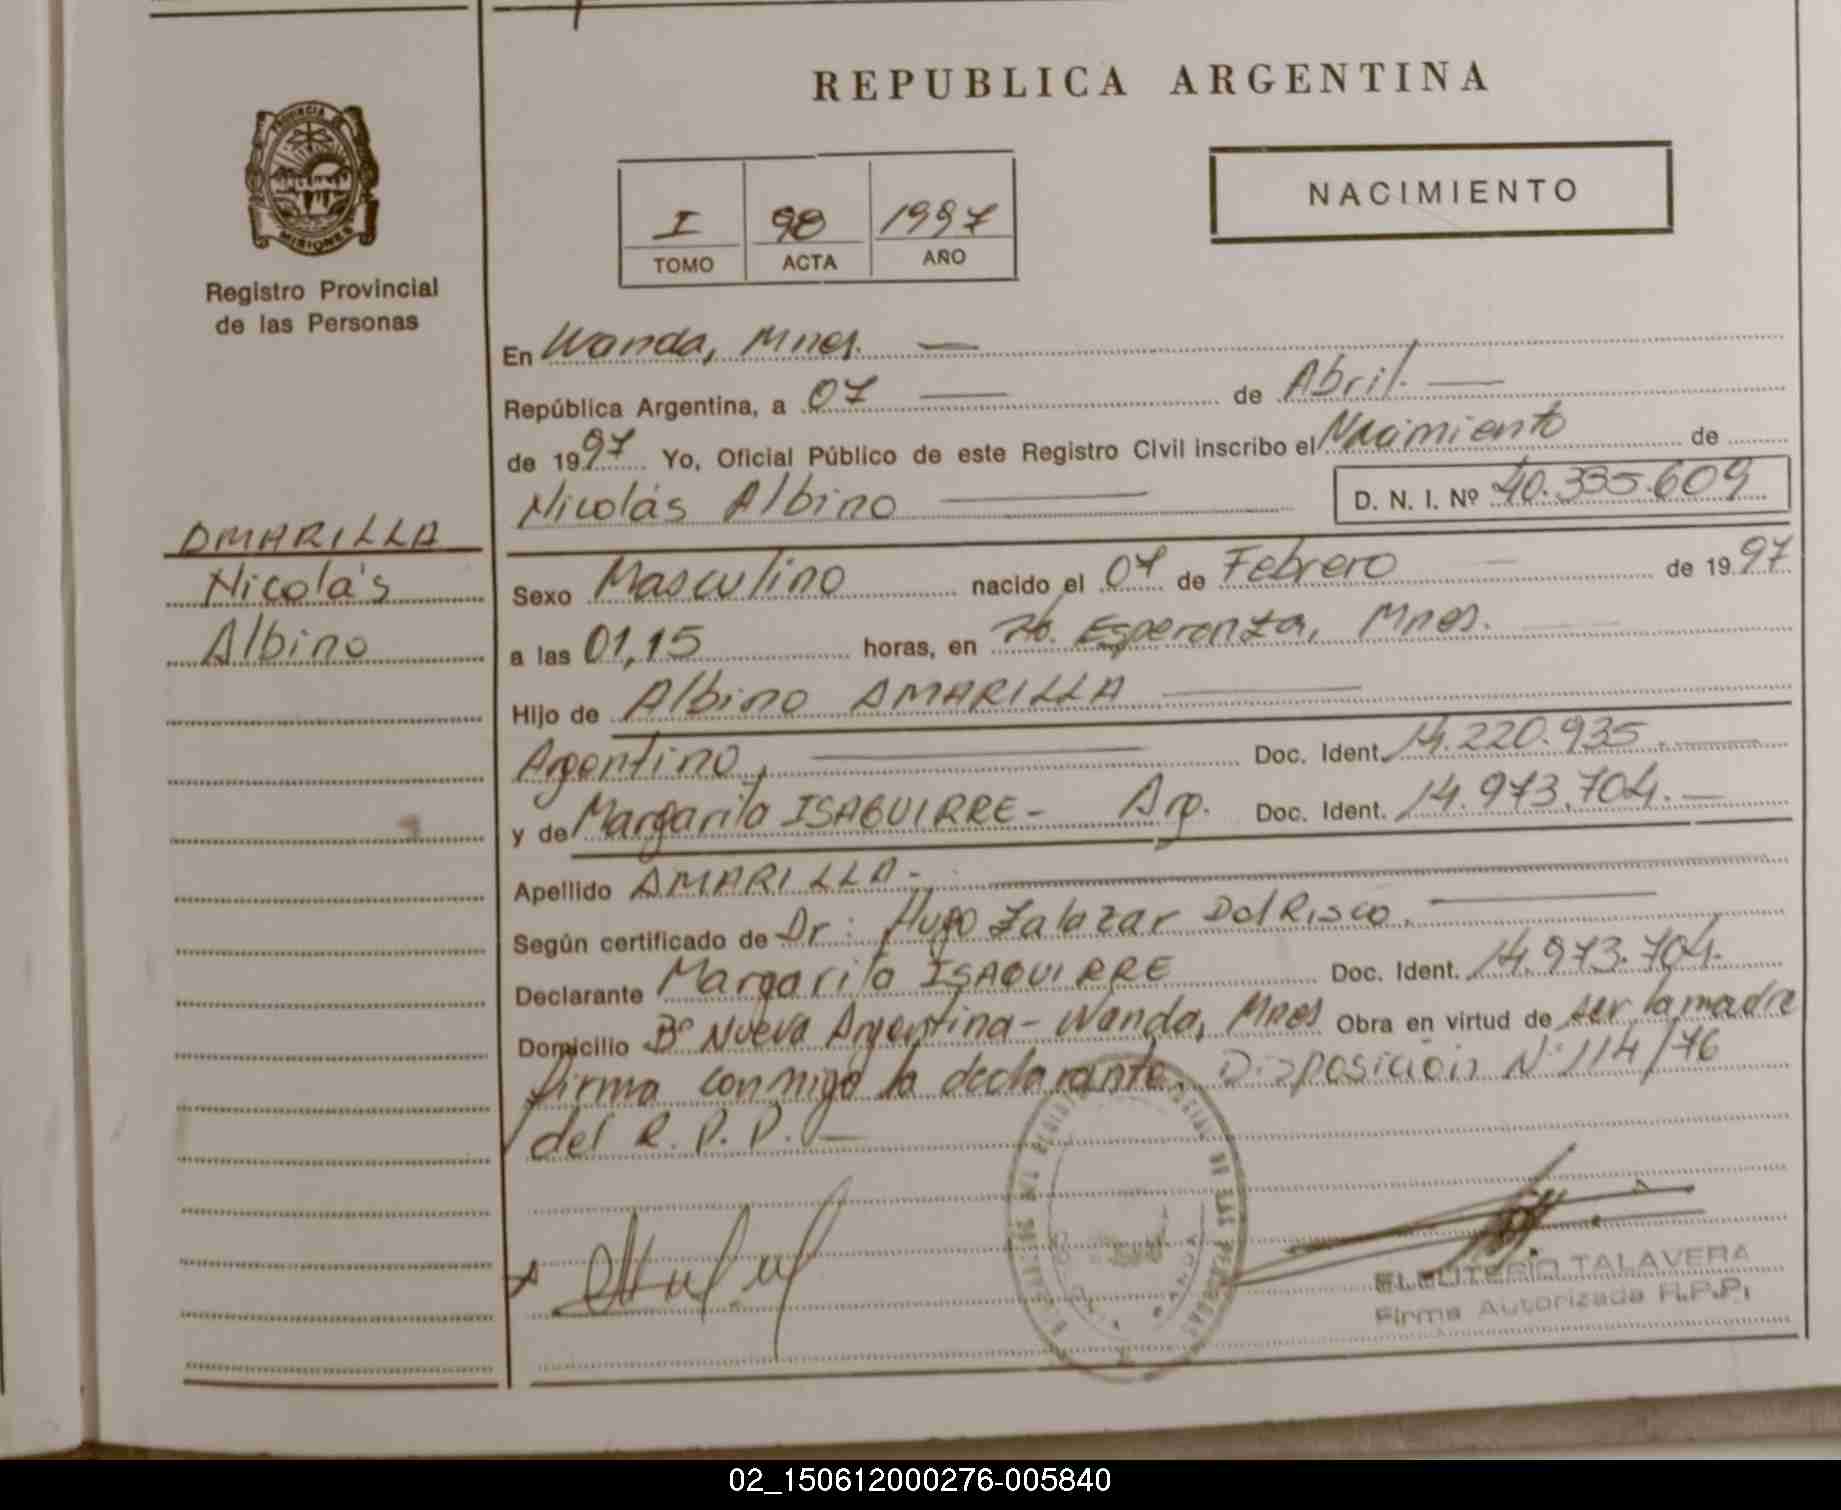 REPUBLICA ARGENTINA
PROVINCIA DE
MISIONES
Registro Provincial
de las Personas
I 98 1997
TOMO ACTA AÑO
NACIMIENTO
En Wanda, Mnes.
República Argentina, a 07 de Abril.
de 1997 Yo, Oficial Público de este Registro Civil inscribo el Nacimiento de
Nicolás Albino D. N. I. Nº 40.335.609
AMARILLA
Nicolás
Albino
Sexo Masculino nacido el 07 de Febrero de 1997
a las 01,15 horas, en Pto. Esperanza, Mnes.
Hijo de Albino AMARILLA
Argentino, Doc. Ident. 14.220.935.
y de Margarita ISAGUIRRE - Arg. Doc. Ident. 14.973.704.
Apellido AMARILLA-
Según certificado de Dr: Hugo Zalazar Del Risco.
Declarante Margarita ISAGUIRRE Doc. Ident. 14.973.704.
Domicilio Bº Nueva Argentina - Wanda, Mnes Obra en virtud de ser la madre
firma conmigo la declarante. Disposición Nº 114/76
del R. P. P.
ELEUTERIO TALAVERA
Firma Autorizada R.P.P.
02_150612000276-005840